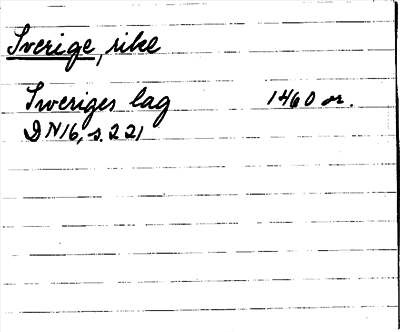 Sverige, rike
Sweriges lag 1460 or.
DN16, s. 221